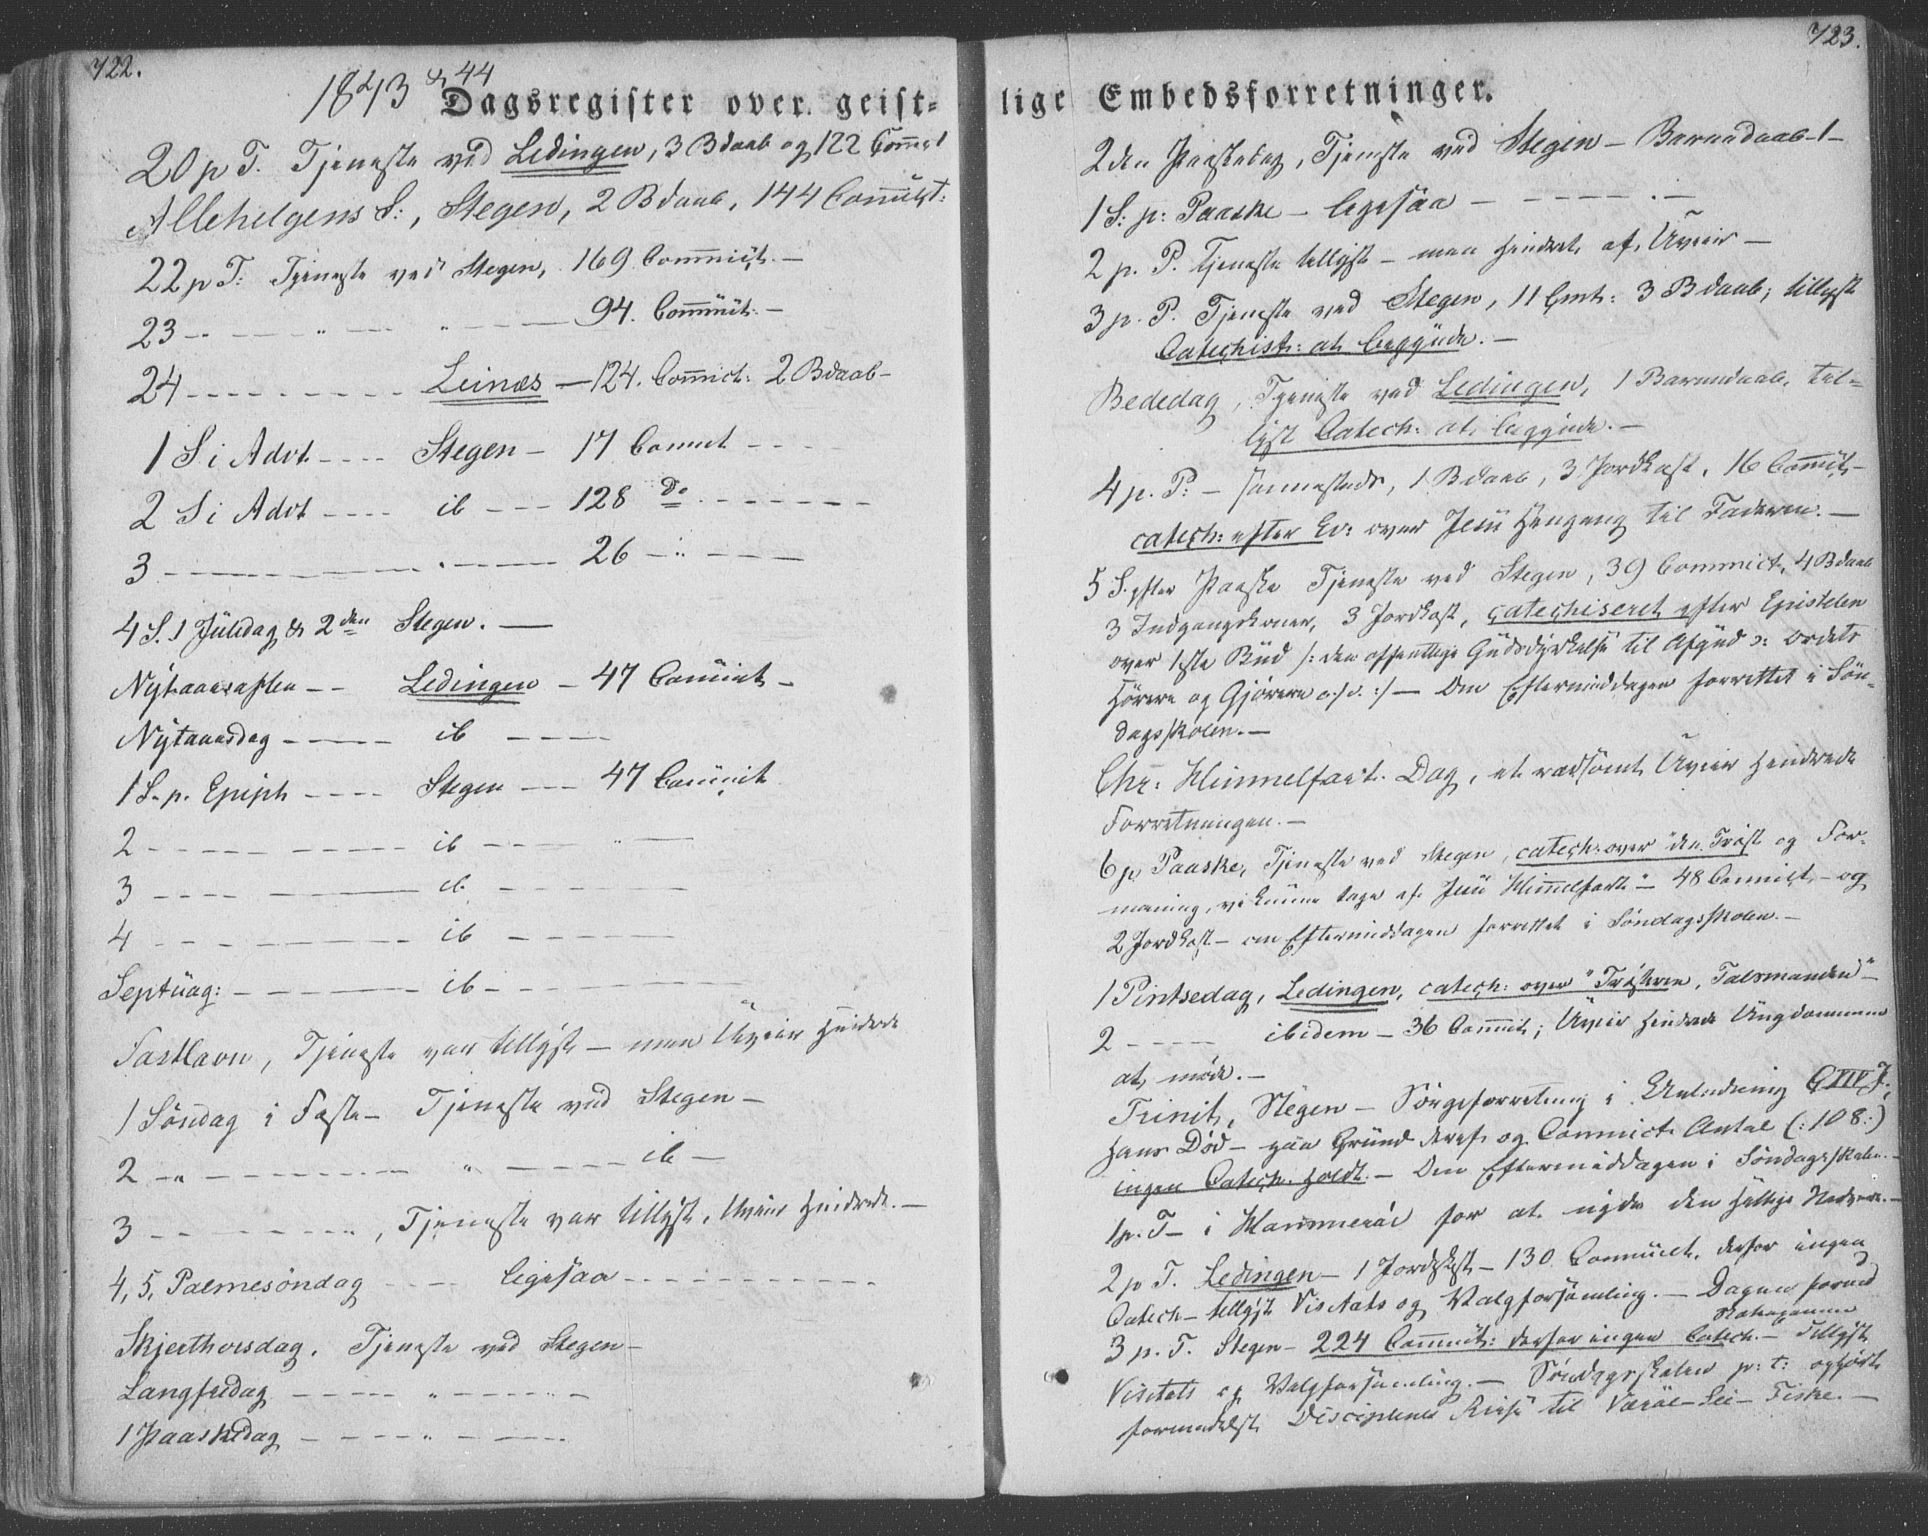 722.
1843 & 44
Dagsregister over geist-
20 p T. Tjeneste ved Ledingen, 3 Bdaab og 122 Com̄ct
Allehelgens S:, Stegen, 2 Bdaab, 144 Com̄ict:
22 p T: Tjeneste ved Stegen, 169 Com̄ict. —
23 — " — " — 94. Com̄unt. —
24 - - - - - Leinæs — 124. Com̄ict: 2 Bdaab —
1 S i Advt. - - - Stegen — 17 Comct - - -
2 S i Advt - - - ib - - - 128 do - - - - -
3 — — — 26 — " — —
4 S. 1 Juledag & 2den Stegen. —
Nytaarsaften - - Ledingen — 47 Com̄ict —
Nytaarsdag - - - ib - - -
1 S. p. Epiph - - - Stegen - - - 47 Com̄ict
2 - - - - - ib - - -
3 - - - - - ib - - -
4 - - - - - ib - - -
Septuag: - - - - ib - - -
Fastlavn, Tjeneste var tillyst — men Uveir hindrede
1 Söndag i Faste — Tjeneste ved Stegen —
2 - " - - - - " - - - ib —
3 - - - - - , Tjeneste var tillyst, Uveir hindrede. —
4, 5, Palmesöndag - - - ligesaa - - - - -
Skjerthorsdag, Tjeneste ved Stegen —
Langfredag - - - - " - - -
1 Paaskedag - - - - " - - -
723.
lige Embedsforretninger.
2den Paaskedag, Tjeneste ved Stegen — Barnedaab — 1 —
1 S: p: Paaske — ligesaa — - - - . —
2 p. P. Tjeneste tillyst — men hindret af Uveir —
3 p. P. Tjeneste ved Stegen, 11 Cmt: 3 Bdaab; tillyst
Catechist: at begynde. —
Bededag, Tjeneste ved Ledingen, 1 Barnedaab, til-
lyst Catech: at begynde. —
4 p. P: — sammesteds, 1 Bdaab, 3 Jordkast, 16 Com̄ict —
catech: efter Ev: over Jesu Hengang til Faderen. —
5 S. efter Paaske Tjeneste ved Stegen, 39 Commict, 4 Bdaab
3 Indgangskoner, 3 Jordkast, catechiseret efter Epistelen
over 1ste Bud /: den offentlige Gudsdyrkelse til Afgud ɔ: Ordets
Hörere og Gjörere o.s.v. :/ — Om Eftermiddagen forrettet i Sön-
dagsskolen. —
Chr: Himmelfart. Dag, et rædsomt Uveir hindrede
Forretningen. —
6 p. Paaske, Tjeneste ved Stegen, catech: over "den Tröst og For-
maning, vi kunne tage af Jesu Himmelfart" — 48 Commict — og
2 Jordkast — om Eftermiddagen forrettet i Söndagsskolen. —
1 Pintsedag, Ledingen, catech: over "Trösteren, Talsmanden" —
2 - - - ibidem — 36 Commit; Uveir hindrede Ungdommen
at möde. —
Trinit, Stegen — Sörgeforretning i Anledning C XIV J.
Hans Död — paa Grund deraf og Commict. Antal (: 108 :)
ingen Catech. holdt. — Om Eftermiddagen i Söndagsskolen. —
1 p. T — i Hammeröe for at nyde den hellige Nadvere. —
2 p T. Ledingen — 1 Jordkast — 130 Commict. derfor ingen
Catech — tillyst Visitats og Valgforsamling. — Dagen forud
3 p. T. Stegen — 224 Commict: derfor ingen Catech. — Tillyst
Visitats og Valgforsamling. — Söndagsskolen p: t: ophört
formedelst Disciplenes Reise til Væröe-Sei-Fiske. —